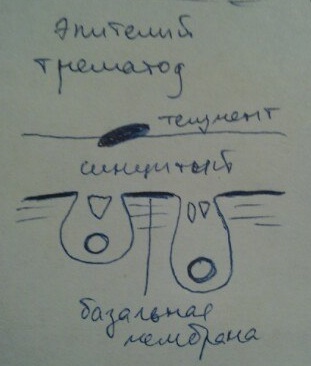 Эпителий
трематод
тегумент
синцитий
базальная
мембрана